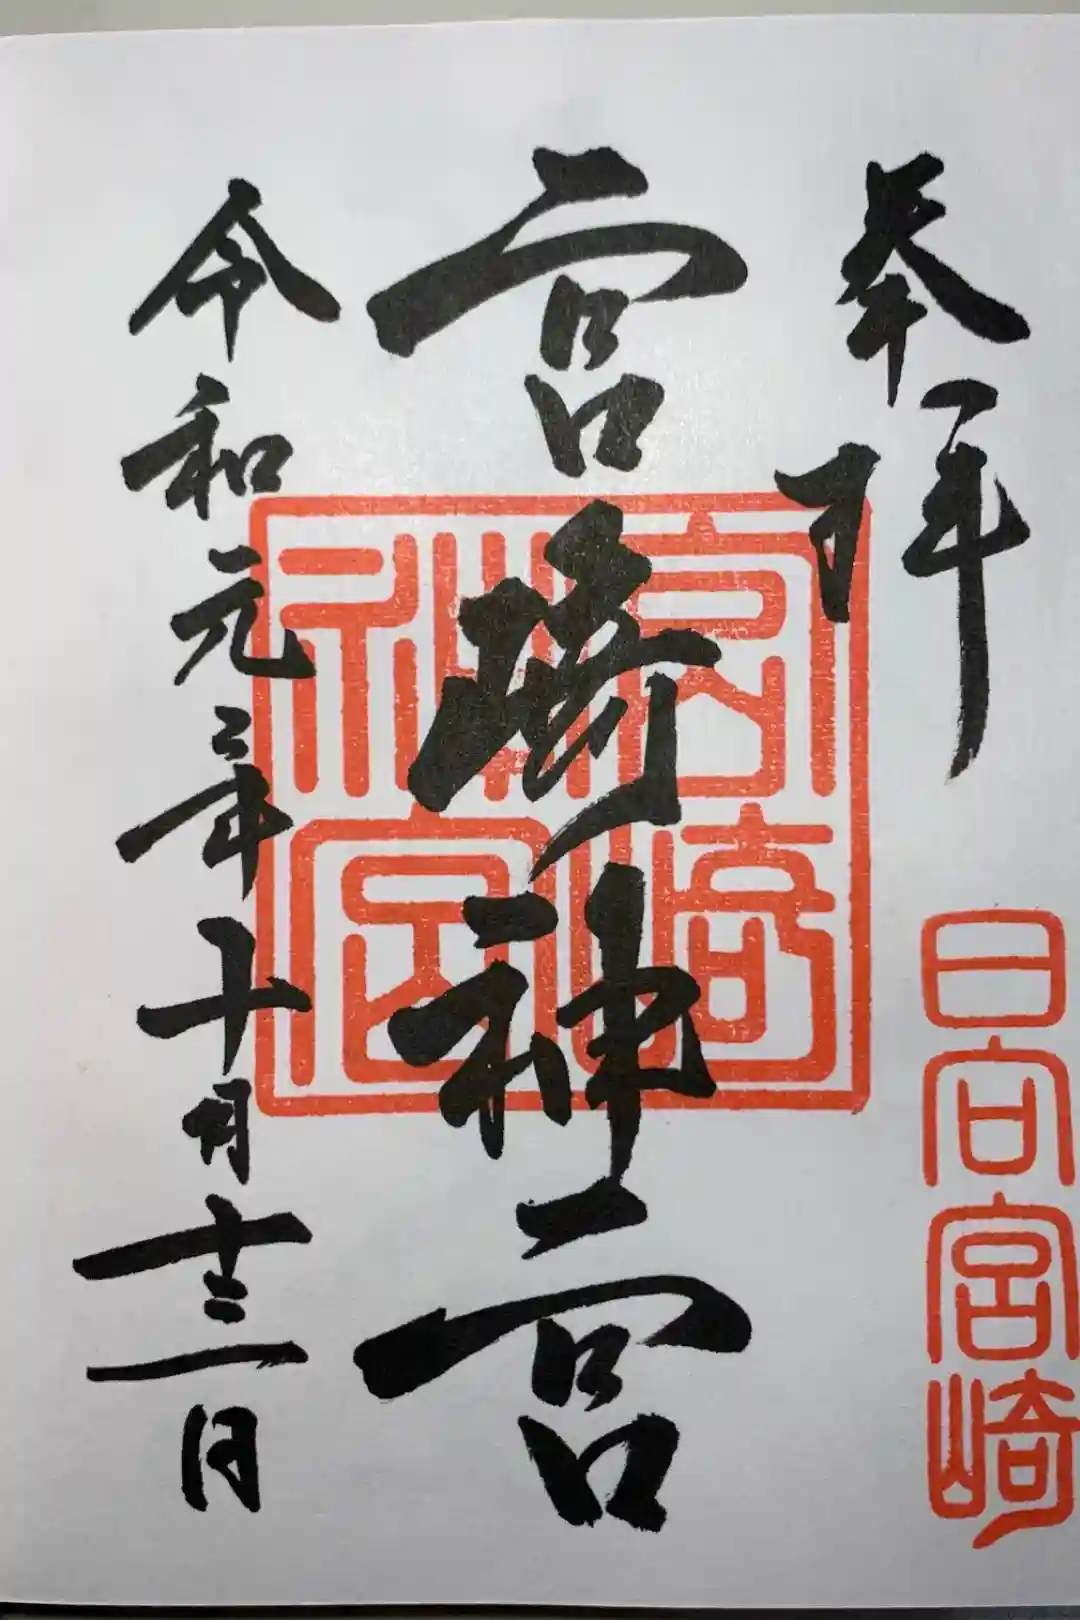 奉拝
日向宮崎
宮崎神宮
宮崎神宮
令和元年十月十三日